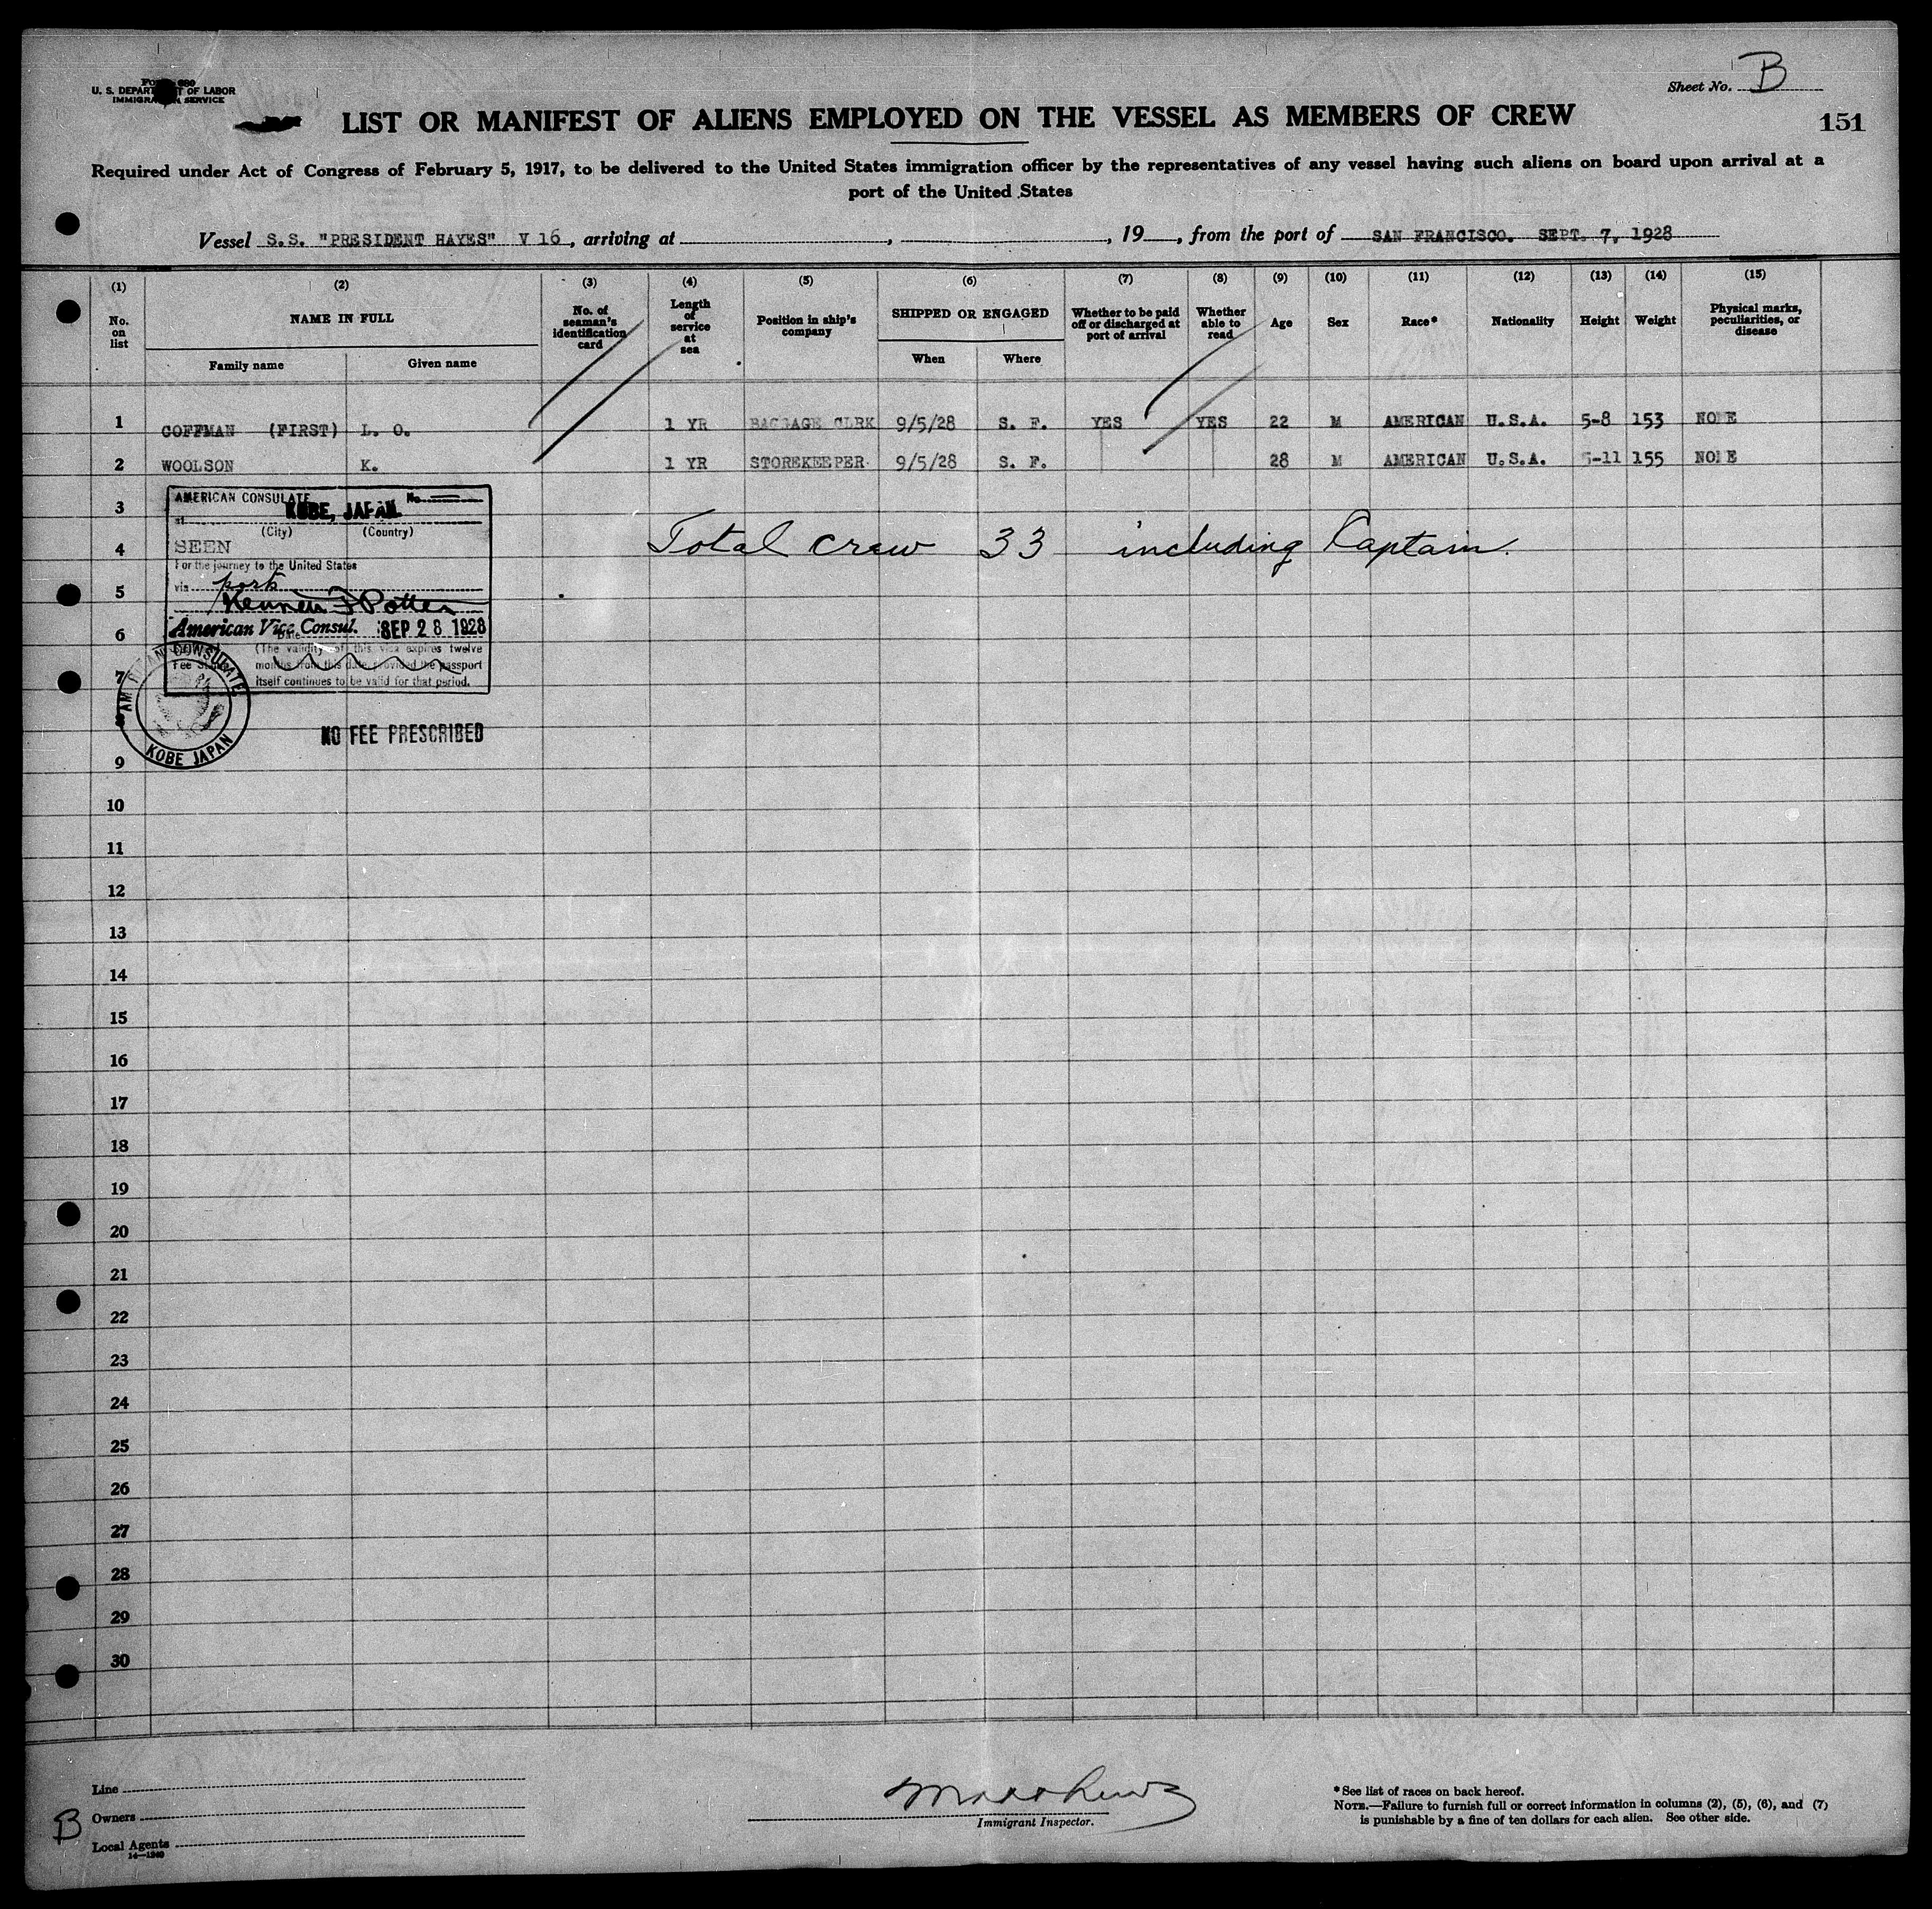 U. S. DEPARTMENT OF LABOR
IMMIGRATION SERVICE
Sheet No. B
LIST OR MANIFEST OF ALIENS EMPLOYED ON THE VESSEL AS MEMBERS OF CREW
151
Required under Act of Congress of February 5, 1917, to be delivered to the United States immigration officer by the representatives of any vessel having such aliens on board upon arrival at a
port of the United States
Vessel S.S. "PRESIDENT HAYES" V 16, arriving at , , 19 , from the port of SAN FRANCISCO. SEPT. 7, 1928
(1) (2) (3) (4) (5) (6) (7) (8) (9) (10) (11) (12) (13) (14) (15)
No. on list NAME IN FULL No. of seaman's identification card Length of service at sea Position in ship's company SHIPPED OR ENGAGED Whether to be paid off or discharged at port of arrival Whether able to read Age Sex Race* Nationality Height Weight Physical marks, peculiarities, or disease
Family name Given name When Where
1 COFFMAN (FIRST) L. O. 1 YR BAGGAGE CLRK 9/5/28 S. F. YES YES 22 M AMERICAN U.S.A. 5-8 153 NONE
2 WOOLSON K. 1 YR STOREKEEPER 9/5/28 S. F. 28 M AMERICAN U.S.A. 5-11 155 NONE
3
4
5
6
7
8
9
10
11
12
13
14
15
16
17
18
19
20
21
22
23
24
25
26
27
28
29
30
AMERICAN CONSULATE No.
at KOBE, JAPAN.
(City) (Country)
SEEN
For the journey to the United States
via
Potter
American Vice Consul. SEP 28 1928
Date
Fee (The validity of this visa expires twelve
months from this date provided the passport
itself continues to be valid for that period.
AMERICAN CONSULATE
KOBE JAPAN
NO FEE PRESCRIBED
Total crew 33 including Captain.
Line
Owners
B
Local Agents
14—1240
Immigrant Inspector.
*See list of races on back hereof.
NOTE.—Failure to furnish full or correct information in columns (2), (5), (6), and (7)
is punishable by a fine of ten dollars for each alien. See other side.